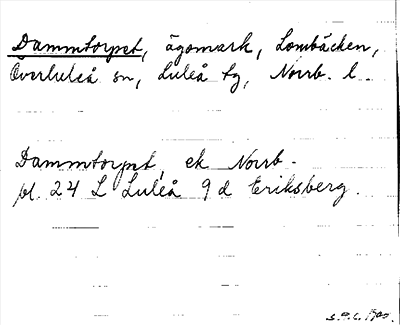 Dammtorpet, ägomark, Lombäcken,
Överluleå sn, Luleå tg, Norrb. l.
Dammtorpet, ek Norrb.
bl. 24 L Luleå 9 d Eriksberg.